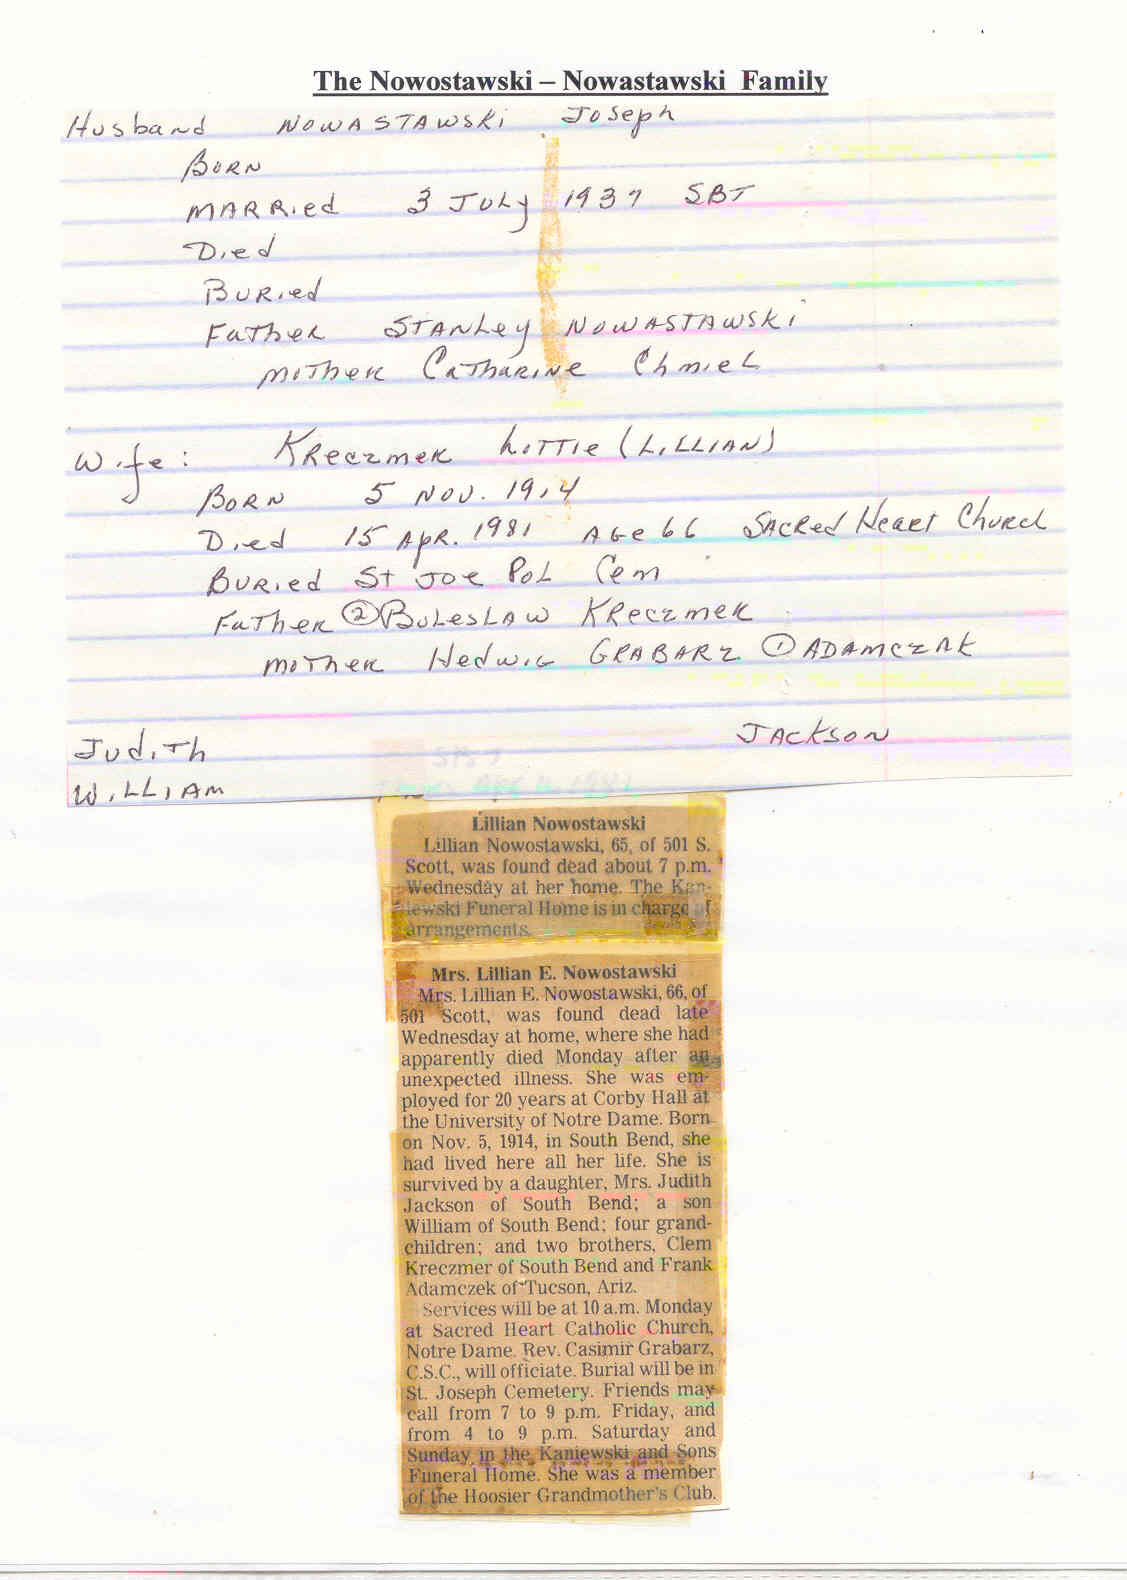 The Nowostawski – Nowastawski Family
Husband NOWASTAWSKi Joseph
BORN
MARRied 3 JULy 1937 SBT
Died
BURied
FaTheR STANLey NOWASTAWSKi
MOTheR CaTHaRiNe ChmieL
Wife: KReczmeR LoTTie (LiLLIAN)
BORN 5 NOV. 1914
Died 15 APR. 1981 AGe 66 SACRed HeaRT ChuRch
BURied ST JOe POL Cem
FaTheR ② BOLeSLAW KReczmeR
MOTheR HedwiG GRABARZ ① ADAMCZAK
JudiTh JACKSON
WiLLIAM
Lillian Nowostawski
Lillian Nowostawski, 65, of 501 S.
Scott, was found dead about 7 p.m.
Wednesday at her home. The Kan-
iewski Funeral Home is in charge of
arrangements.
Mrs. Lillian E. Nowostawski
Mrs. Lillian E. Nowostawski, 66, of
501 Scott, was found dead late
Wednesday at home, where she had
apparently died Monday after an
unexpected illness. She was em-
ployed for 20 years at Corby Hall at
the University of Notre Dame. Born
on Nov. 5, 1914, in South Bend, she
had lived here all her life. She is
survived by a daughter, Mrs. Judith
Jackson of South Bend; a son
William of South Bend; four grand-
children; and two brothers, Clem
Kreczmer of South Bend and Frank
Adamczek of Tucson, Ariz.
Services will be at 10 a.m. Monday
at Sacred Heart Catholic Church,
Notre Dame. Rev. Casimir Grabarz,
C.S.C., will officiate. Burial will be in
St. Joseph Cemetery. Friends may
call from 7 to 9 p.m. Friday, and
from 4 to 9 p.m. Saturday and
Sunday in the Kaniewski and Sons
Funeral Home. She was a member
of the Hoosier Grandmother's Club.